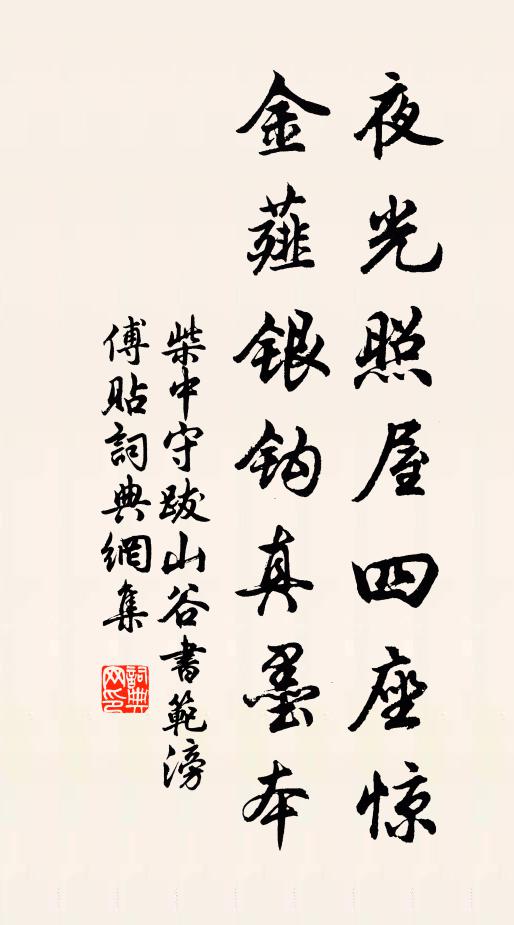 夜光照屋四座惊
金薤银钩真墨本
柴中守跋山谷書範滂
傅貼詞典網集
詞典网印